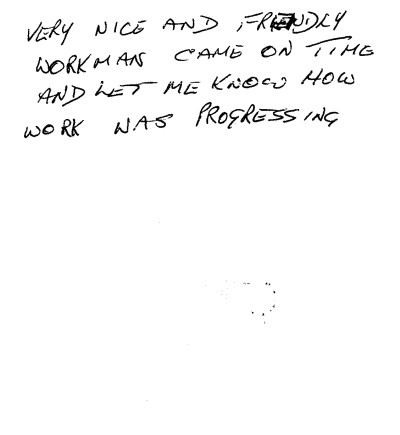 VERY NICE AND FRIENDLY
WORKMAN CAME ON TIME
AND LET ME KNOW HOW
WORK WAS PROGRESSING